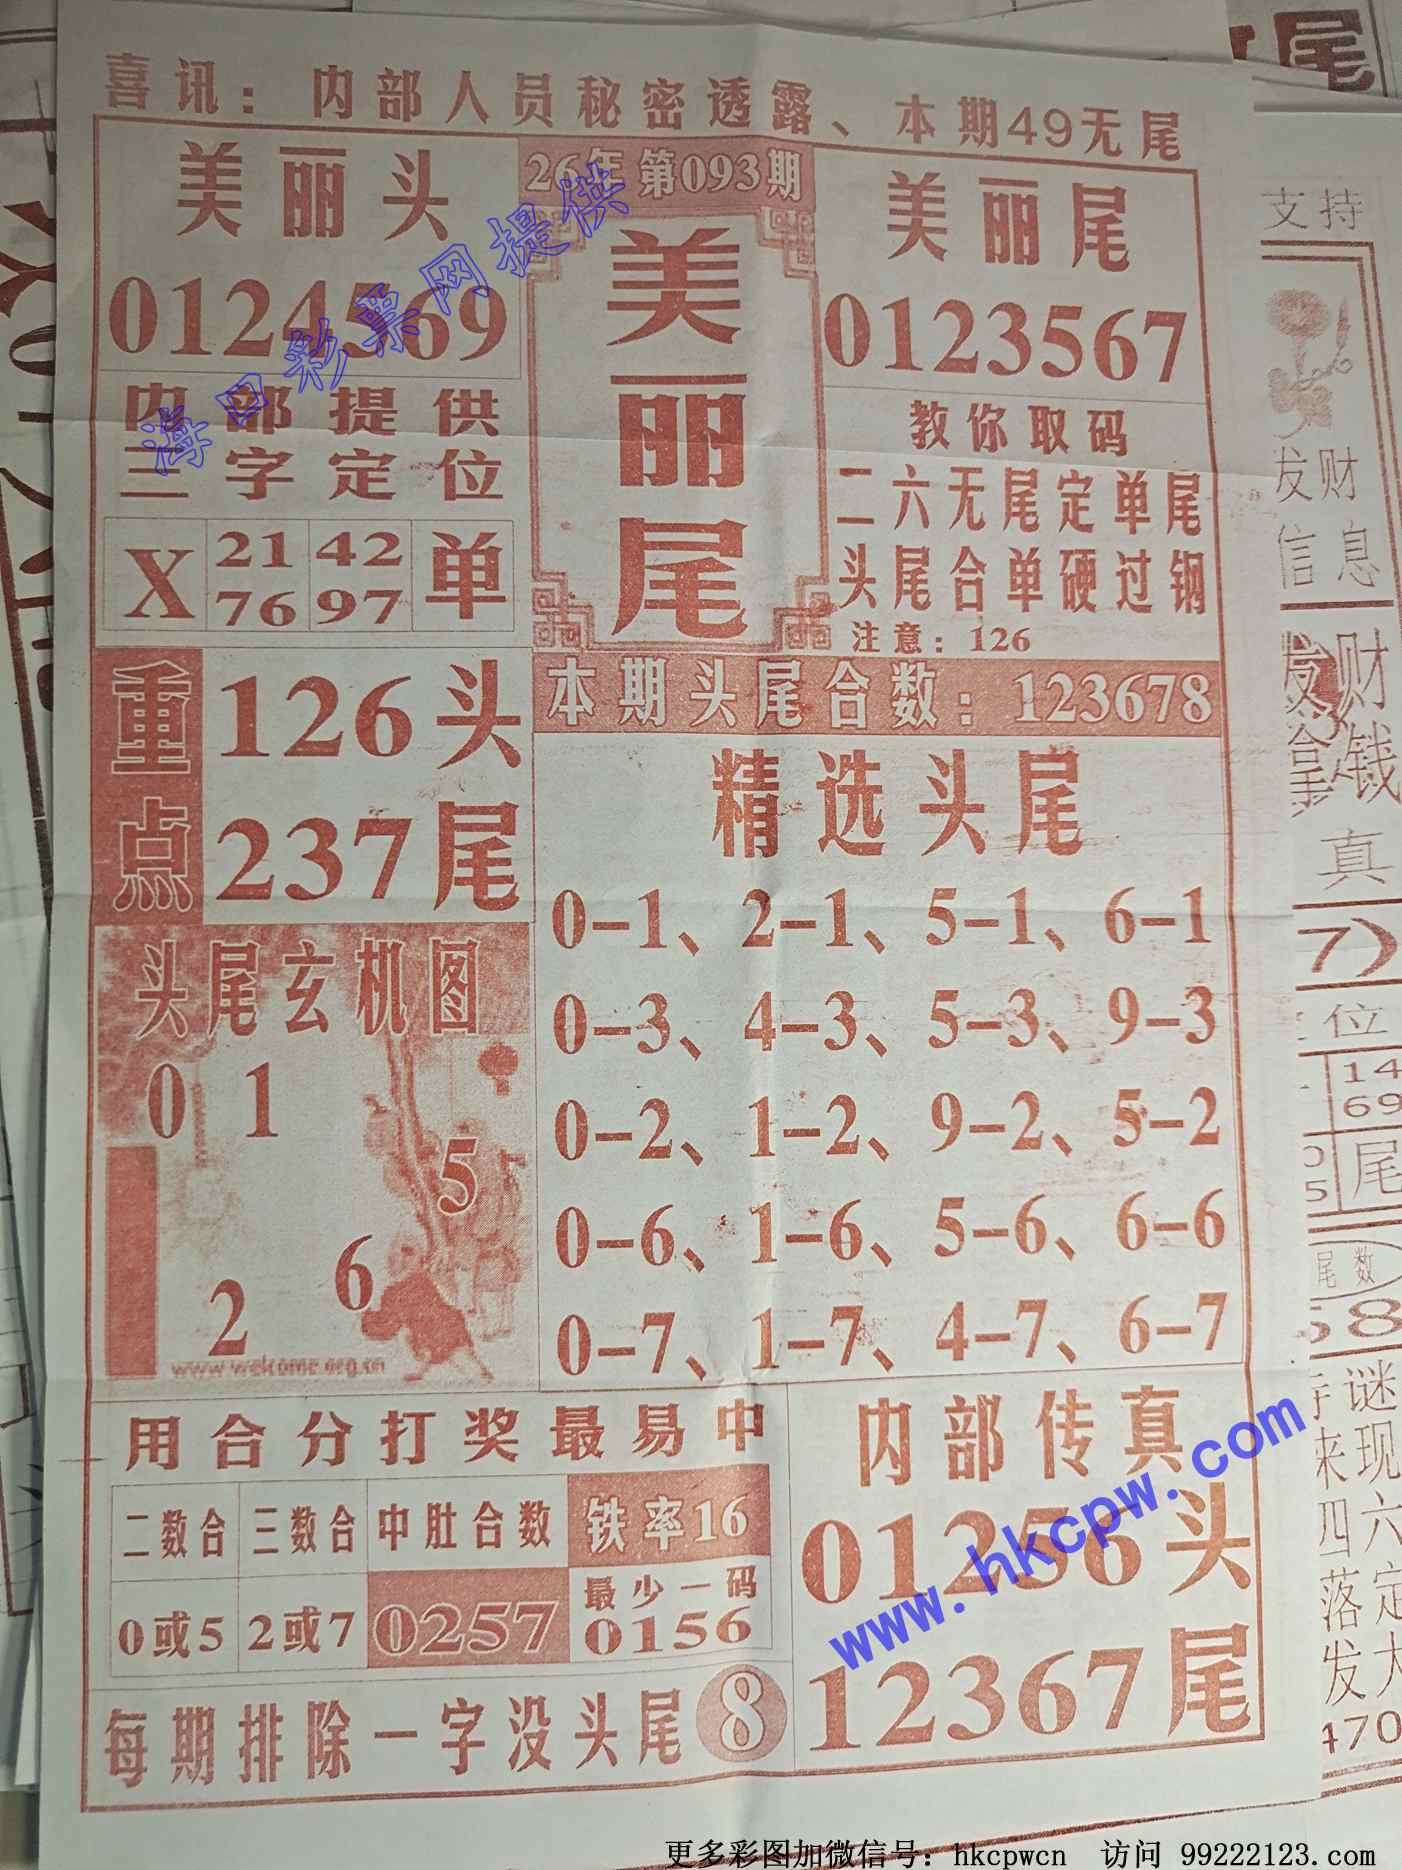 喜讯：内部人员秘密透露、本期49无尾
26年 第093期
美丽尾
美丽头
0124569
美丽尾
0123567
内部提供
三字定位
X 21 42 单
76 97
教你取码
二六无尾定单尾
头尾合单硬过钢
注意：126
重点
126头
237尾
本期头尾合数：123678
精选头尾
0-1、2-1、5-1、6-1
0-3、4-3、5-3、9-3
0-2、1-2、9-2、5-2
0-6、1-6、5-6、6-6
0-7、1-7、4-7、6-7
头尾玄机图
0 1
5
6
2
www.welcome.org.cn
用合分打奖最易中
二数合 三数合 中肚合数 铁率16
0或5 2或7 0257 最少一码
0156
每期排除一字没头尾 8
内部传真
01256头
12367尾
海口彩票网提供
www.hkcpw.com
支持
发财
信息
发财
拿钱
真
7)
位
14
69
尾
5
尾数
8
谜
来现
四六
落定
发大
470
尾
更多彩图加微信号：hkcpwcn 访问 99222123.com